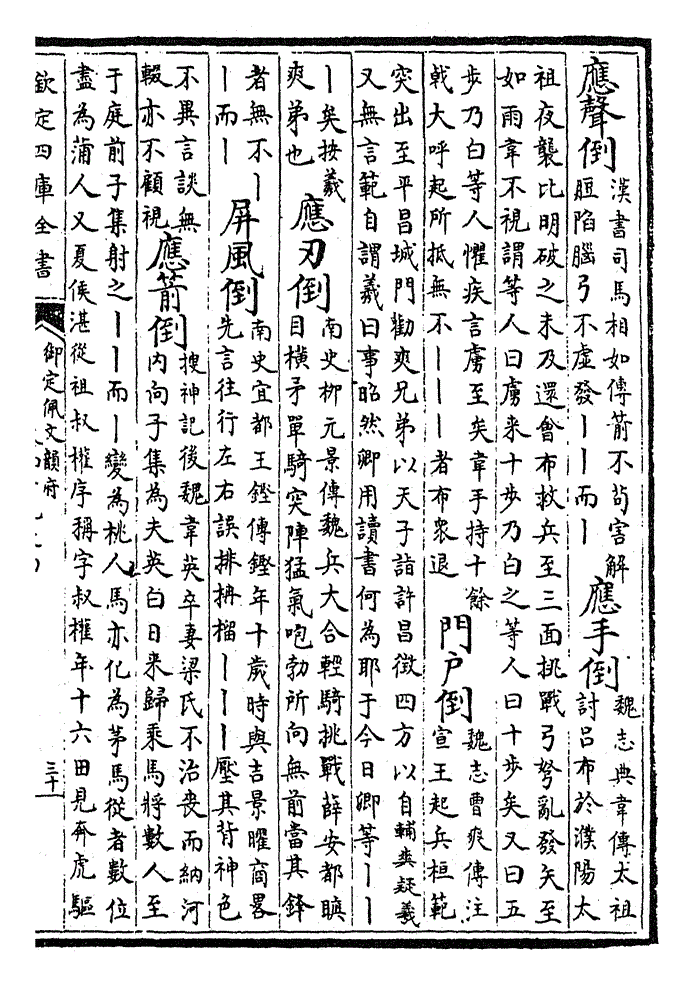 應聲倒
漢書司馬相如傳箭不苟害解
脰陷腦弓不虛發丨丨而丨
應手倒
魏志典韋傳太祖
討呂布於濮陽太
祖夜襲比明破之未及還會布救兵至三面挑戰弓弩亂發矢至
如雨韋不視謂等人曰虜来十步乃白之等人曰十步矣又曰五
步乃白等人懼疾言虜至矣韋手持十餘
戟大呼起所抵無不丨丨丨者布衆退
門户倒
魏志曹爽傳注
宣王起兵桓範
突出至平昌城門勸爽兄弟以天子詣許昌徵四方以自輔爽疑羲
又無言範自謂羲曰事昭然卿用讀書何為耶于今日卿等丨丨
丨矣按羲
爽弟也
應刃倒
南史柳元景傳魏兵大合輕騎挑戰薛安都瞋
目横矛單騎突陣猛氣咆勃所向無前當其鋒
者無不丨
丨而丨
屏風倒
南史宜都王鏗傳鏗年十歲時與吉景曜商畧
先言往行左右誤排柟榴丨丨丨壓其背神色
不異言談無
輟亦不顧視
應箭倒
搜神記後魏韋英卒妻梁氏不治喪而納河
內向子集為夫英白日来歸乘馬將數人至
于庭前子集射之丨丨而丨變為桃人馬亦化為茅馬從者數位
盡為蒲人又夏侯湛從祖叔權序稱字叔權年十六田見奔虎驅
欽定四庫全書
御定佩文韻府
三十一